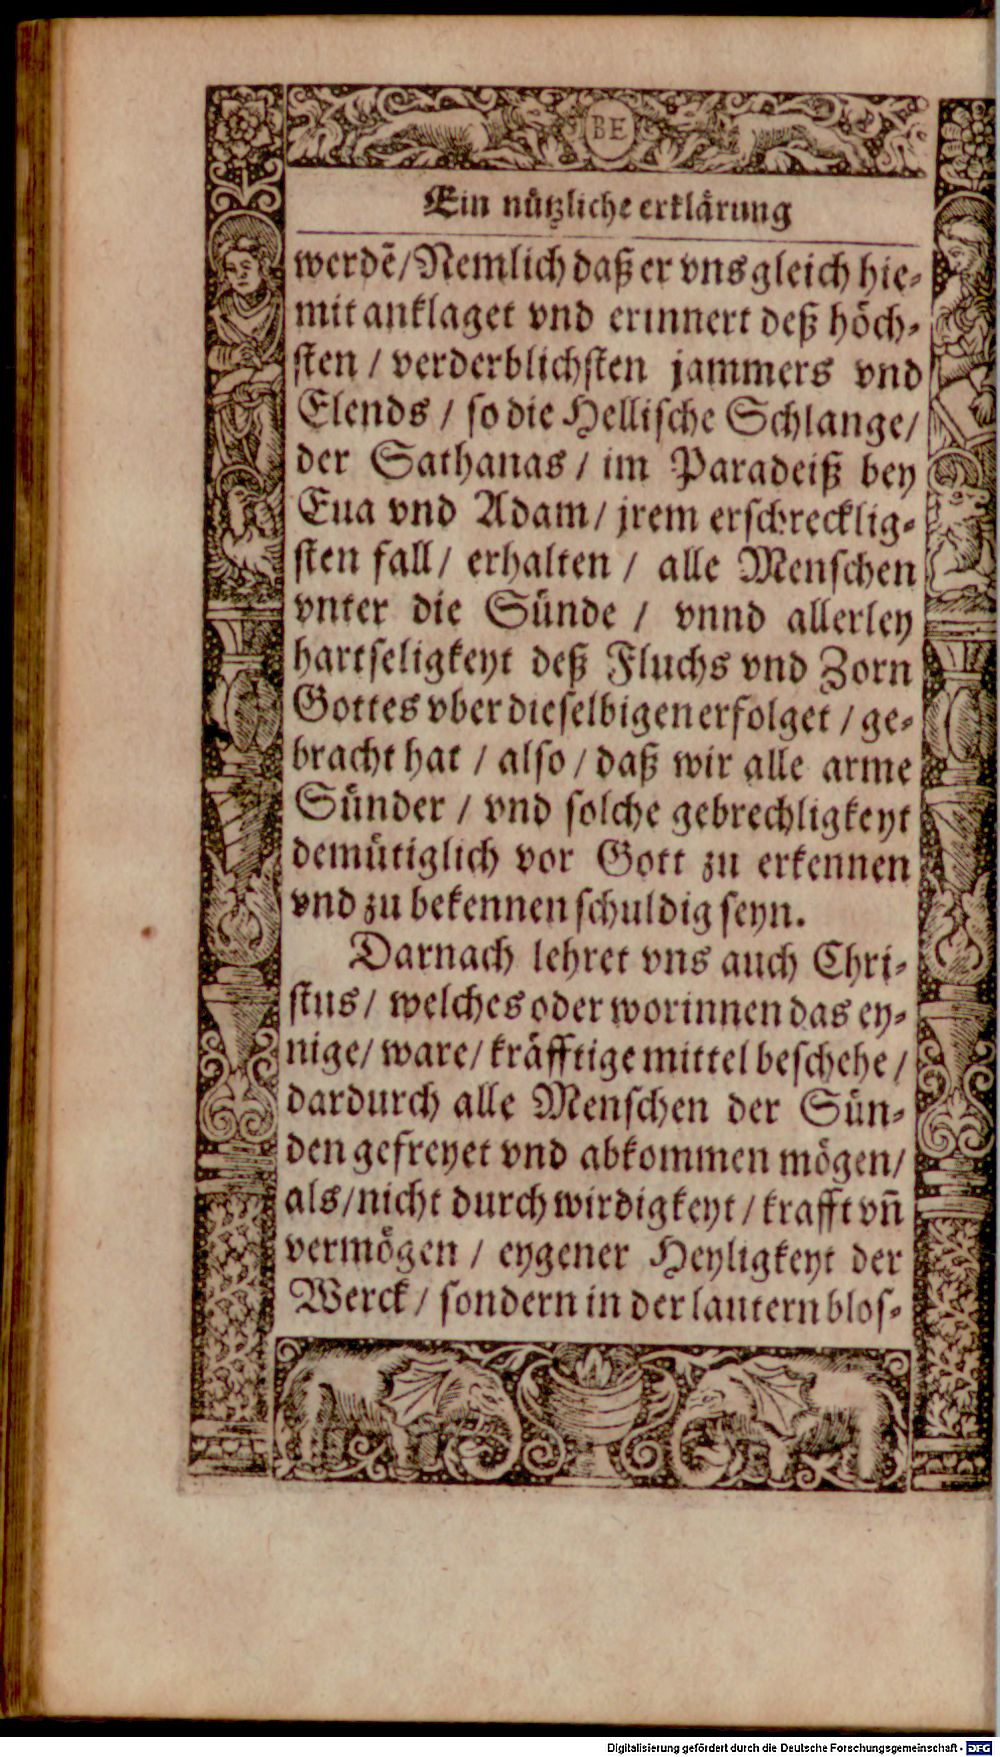 BE
Ein nützliche erklärung
werdẽ/Nemlich daß er vns gleich hie-
mit anklaget vnd erinnert deß höch-
sten / verderblichsten jammers vnd
Elends / so die Hellische Schlange/
der Sathanas / im Paradeiß bey
Eua vnd Adam/ jrem erschrecklig-
sten fall/ erhalten / alle Menschen
vnter die Sünde / vnnd allerley
hartseligkeyt deß Fluchs vnd Zorn
Gottes vber dieselbigen erfolget / ge-
bracht hat / also / daß wir alle arme
Sünder / vnd solche gebrechligkeyt
demütiglich vor Gott zu erkennen
vnd zu bekennen schuldig seyn.
Darnach lehret vns auch Chri-
stus/ welches oder worinnen das ey-
nige/ ware/ kräfftige mittel beschehe /
dardurch alle Menschen der Sün-
den gefreyet vnd abkommen mögen/
als/nicht durch wirdigkeyt / krafft vñ
vermögen / eygener Heyligkeyt der
Werck / sondern in der lautern blos-
Digitalisierung gefördert durch die Deutsche Forschungsgemeinschaft - DFG